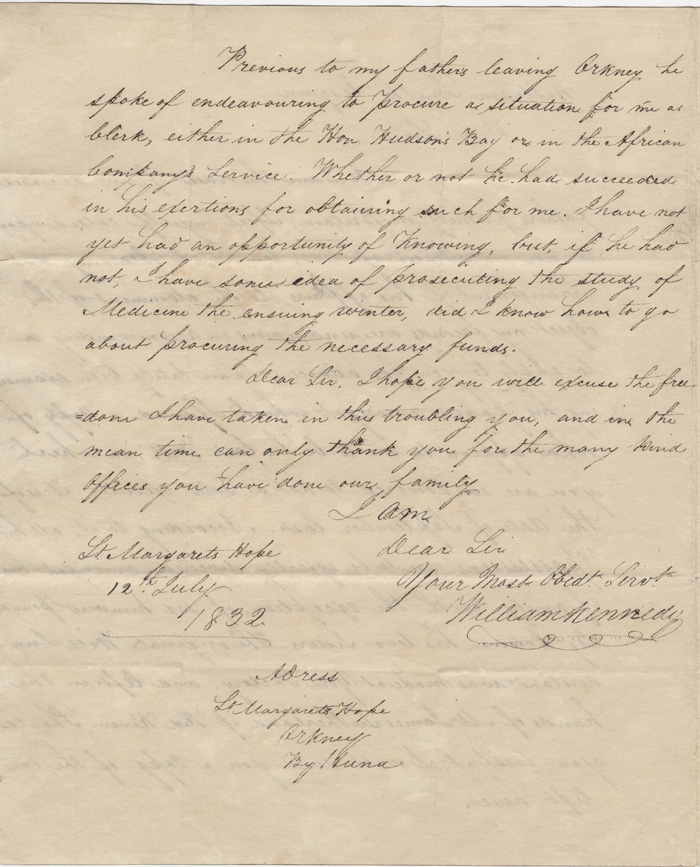 Previous to my fathers leaving Orkney he
spoke of endeavouring to procure a situation for me as
Clerk, either in the Hon. Hudson's Bay or in the African
Company's Service. Whether or not he had succeeded
in his exertions for obtaining such for me. I have not
yet had an opportunity of Knowing, but, if he had
not, I have some idea of prosecuting the study of
Medicine the ensuing winter, did I know how to go
about procuring the necessary funds.
Dear Sir. I hope you will excuse the free
=dom I have taken in this troubling you, and in the
mean time can only thank you for the many kind
Offices you have done our family
I am
Dear Sir
Your Most Obedt. Servt.
William Kennedy
St. Margarets Hope
12th July
1832
Adress
St. Margarets Hope
Orkney
By Huna